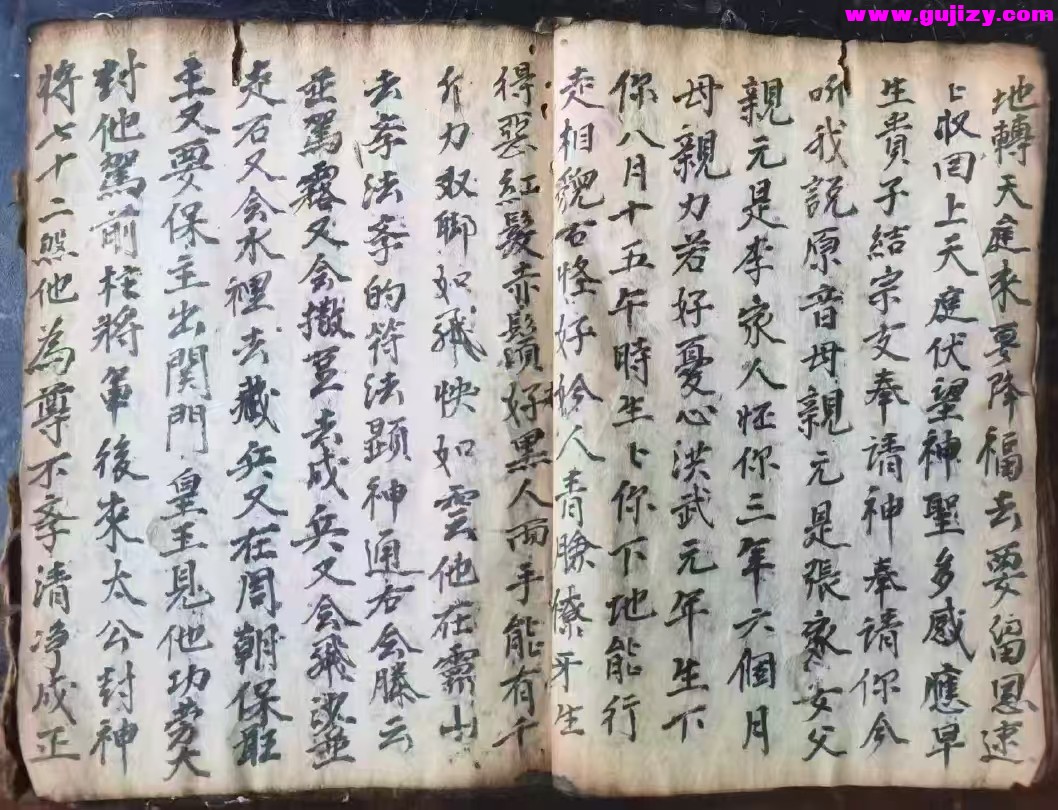 www.gujizy.com
地轉天庭來要降福去要留恩逮
上收回上天庭伏望神聖多感應早
生貴子結宗支奉請神奉請你今
听我說原音母親元是張家女父
親元是李家人怀你三年六個月
母親力若好憂心洪武元年生下
你八月十五午時生生你下地能行
走相貌古怪好妗人青臉獠牙生
得惡紅髮赤鬚好黑人両手能有千
斤力双脚如飛快如雲他在靈山
去李法李的符法顕神通右会騰云
並駕霧又会撒荳去成兵又会飛沙並
走石又会水裡去藏兵又在周朝保駐
主又要保主出関門皇王見他功劳大
封他駕前柱將軍後來太公封神
將七十二煞他為尊不李清净成正